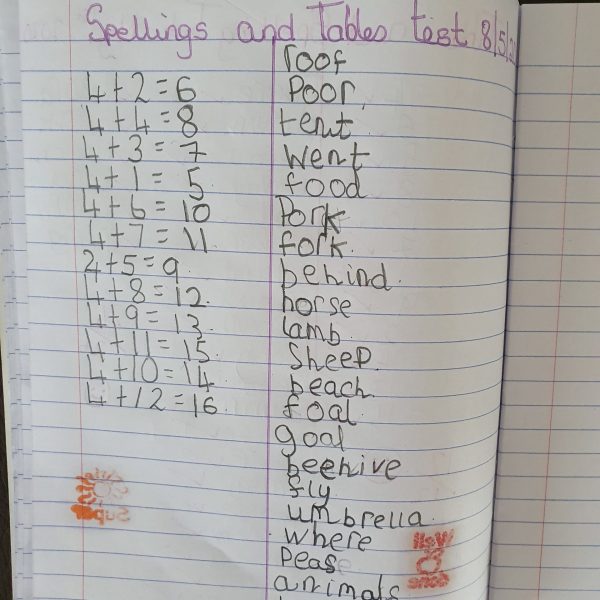 Spellings and Tables test 8/5/2
4+2=6
4+4=8
4+3=7
4+1=5
4+6=10
4+7=11
2+5=9
4+8=12
4+9=13
4+11=15
4+10=14
4+12=16
roof
Poor
tent
went
food
Pork
fork
behind
horse
lamb
Sheep
beach
foal
goal
beehive
fly
umbrella
where
Peas
animals